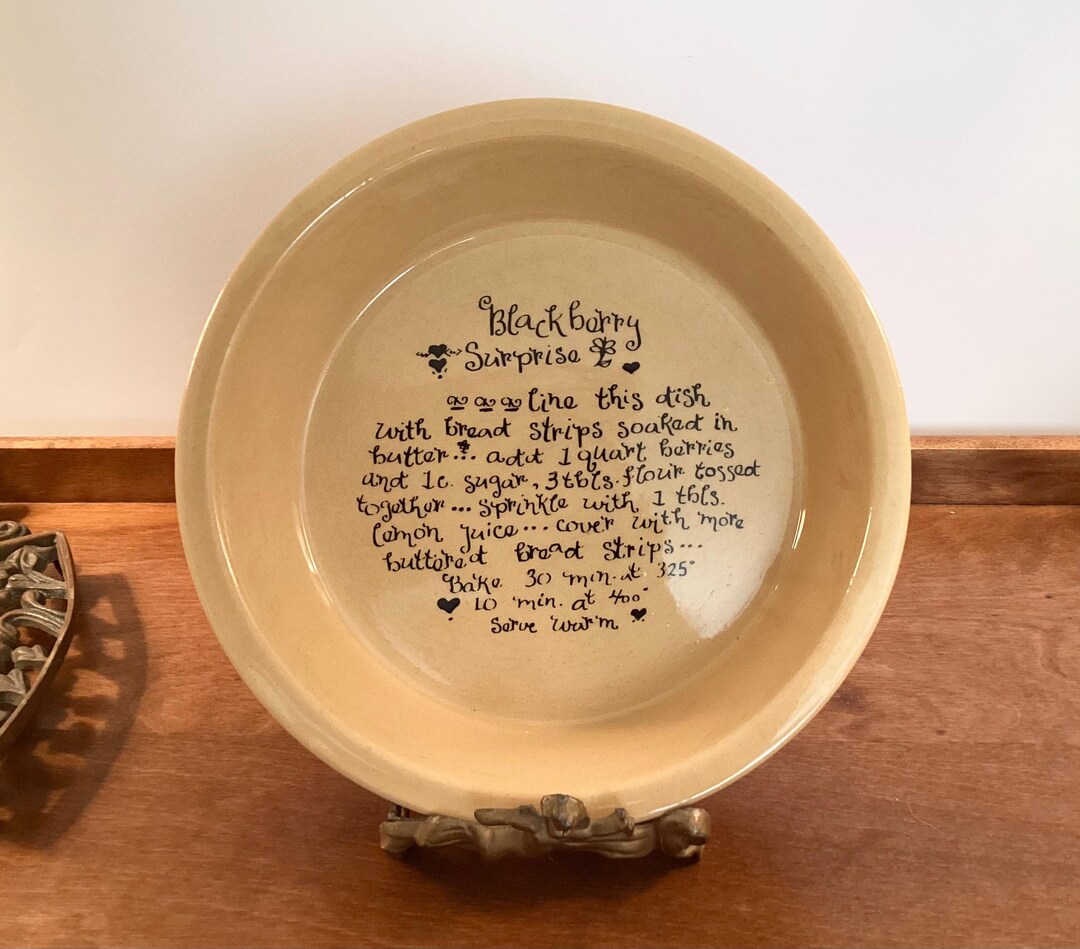 Blackberry
Surprise
line this dish
with bread strips soaked in
butter... add 1 quart berries
and 1c. sugar, 3 tbls. flour tossed
together... sprinkle with 1 tbls.
lemon juice... cover with more
buttered bread strips...
Bake 30 min. at 325°
10 min. at 400°
Serve warm